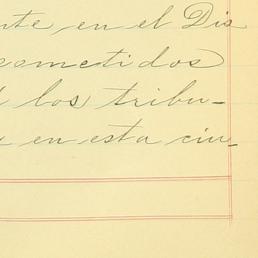 nte en el Dis
ometidos
los tribu-
en esta ciu-